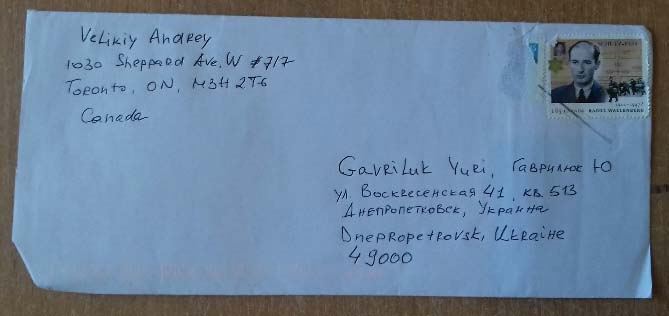 Velikiy Andrey
1030 Sheppard Ave. W #717
Toronto, ON, M3H 2T6
Canada
RAOUL WALLENBERG
Gavriluk Yuri, Гаврилюк Ю
ул. Воскресенская 41, кв. 513
Днепропетковск, Украина
Dnepropetrovsk, Ukraine
49000